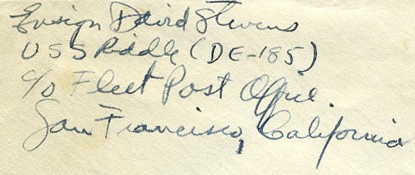 Ensign David Stevens
USS Riddle (DE-185)
c/o Fleet Post Office.
San Francisco, California